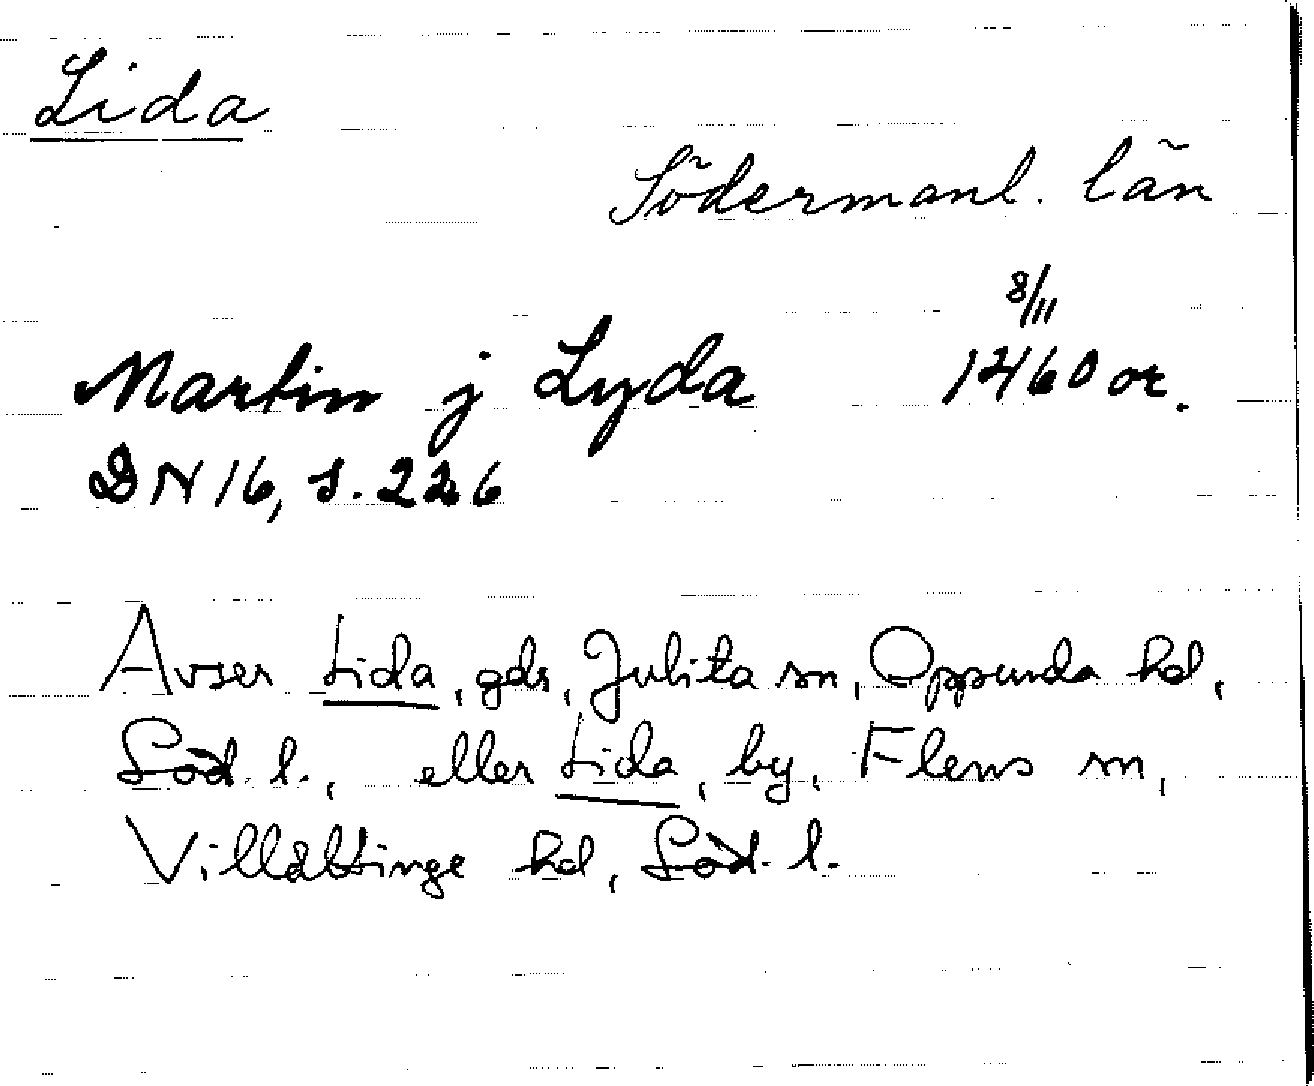 Lida
Södermanl. län
8/11
Martin j Lyda 1460 or.
DN 16, s. 226
Avser Lida, gds, Julita sn, Oppunda hd,
Söd. l., eller Lida, by, Flens sn,
Villåttinge hd, Söd. l.